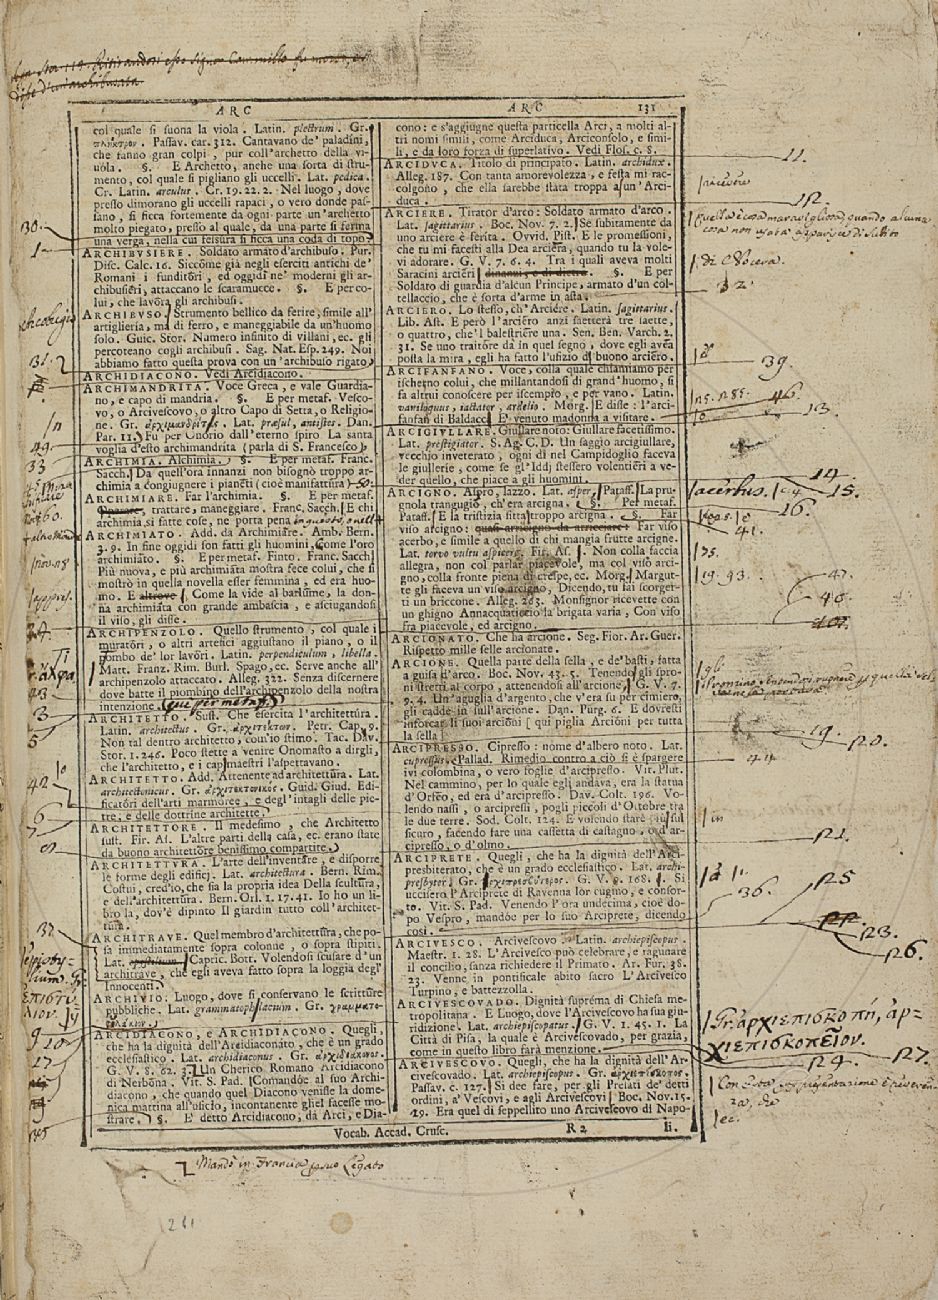 ARC
ARC
131
col quale si suona la viola. Latin. plectrum. Gr.
πλῆκτρον. Passav. car. 312. Cantavano de' paladini,
che fanno gran colpi, pur coll'archetto della vi-
uola. §. E Archetto, anche una sorta di stru-
mento, col quale si pigliano gli uccelli. Lat. pedica.
Cr. Latin. arculus. Cr. 19. 22. 2. Nel luogo, dove
presso dimorano gli uccelli rapaci, o vero donde pas-
sano, si ficca fortemente da ogni parte un'archetto
molto piegato, presso al quale, da una parte si ferma
una verga, nella cui fessura si ficca una coda di topo.
ARCHIBUSIERE. Soldato armato d'archibuso. Pur.
Disc. Calc. 16. Siccome già negli eserciti antichi de'
Romani i funditori, ed oggi ne' moderni gli ar-
chibusieri, attaccano le scaramucce. §. E per co-
lui, che lavora gli archibusi.
ARCHIBUSO. Strumento bellico da ferire, simile all'
artiglieria, ma di ferro, e maneggiabile da un'huomo
solo. Guic. Stor. Numero infinito di villani, ec. gli
percoteano cogli archibusi. Sag. Nat. Esp. 249. Noi
abbiamo fatto questa prova con un'archibuso rigato,
ARCHIDIACONO. Vedi Arcidiacono.
ARCHIMANDRITA. Voce Greca, e vale Guardia-
no, e capo di mandria. §. E per metaf. Vesco-
vo, o Arcivescovo, o altro Capo di Setta, o Religio-
ne. Gr. ἀρχιμανδρίτης. Lat. præsul, antistes. Dan.
Par. 11. Fu per Onorio dall'eterno spiro La santa
voglia d'esto archimandrita (parla di S. Francesco)
ARCHIMIA. Alchimia. §. E per metaf. Franc.
Sacch. Da quell'ora innanzi non bisognò troppo ar-
chimia a congiugnere i pianeti (cioè manifattura)
ARCHIMIARE. Far l'archimia. §. E per metaf.
trattare, maneggiare. Franc. Sacch. E chi
archimia, si fatte cose, ne porta pena
ARCHIMIATO. Add. da Archimiare. Amb. Bern.
3. 9. In fine oggidì son fatti gli huomini, Come l'oro
archimiato. §. E per metaf. Finto. Franc. Sacch.
Più nuova, e più archimiata mostra fece colui, che si
mostrò in questa novella esser femmina, ed era huo-
mo. E altrove. Come la vide al barlume, la don-
na archimiata con grande ambascia, e asciugandosi
il viso, gli disse.
ARCHIPENZOLO. Quello strumento, col quale i
muratori, o altri artefici aggiustano il piano, o il
piombo de' lor lavori. Latin. perpendiculum, libella.
Matt. Franz. Rim. Burl. Spago, ec. Serve anche all'
archipenzolo attaccato. Alleg. 322. Senza discernere
dove batte il piombino dell'archipenzolo della nostra
intenzione. (qui per metaf.)
ARCHITETTO. Sust. Che esercita l'architettura.
Latin. architectus. Gr. ἀρχιτέκτων. Petr. Cap. 9.
Non tal dentro architetto, com'io stimo. Tac. Dav.
Stor. 1. 246. Poco stette a venire Onomasto a dirgli,
che l'architetto, e i capmaestri l'aspettavano.
ARCHITETTO. Add. Attenente ad architettura. Lat.
architectonicus. Gr. ἀρχιτεκτονικός. Guid. Giud. Edi-
ficatori dell'arti marmoree, e degl'intagli delle pie-
tre, e delle dottrine architette.
ARCHITETTORE. Il medesimo, che Architetto
sust. Fir. As. L'altre parti della casa, ec. erano state
da buono architettore benissimo compartite.
ARCHITETTURA. L'arte dell'inventare, e disporre
le forme degli edificj. Lat. architectura. Bern. Rim.
Costui, cred'io, che sia la propria idea Della scultura,
e dell'architettura. Bern. Orl. 1. 17. 41. Io ho un li-
bro la, dov'è dipinto Il giardin tutto coll'architet-
tura.
ARCHITRAVE. Quel membro d'architettura, che po-
sa immediatamente sopra colonne, o sopra stipiti.
Lat. epistilium. Capric. Bott. Volendosi scusare d'un
architrave, che egli aveva fatto sopra la loggia degl'
Innocenti.
ARCHIVIO. Luogo, dove si conservano le scritture
pubbliche. Lat. grammatophilacium. Gr. γραμματο-
φυλάκιον.
ARCIDIACONO, e ARCHIDIACONO. Quegli,
che ha la dignità dell'Arcidiaconato, che è un grado
ecclesiastico. Lat. archidiaconus. Gr. ἀρχιδιάκονος.
G. V. 8. 62. 3. Un Cherico Romano Arcidiacono
di Nerbona. Vit. S. Pad. Comandòe al suo Archi-
diacono, che quando quel Diacono venisse la dome-
nica mattina all'uficio, incontanente gliel facesse mo-
strare. §. E' detto Arcidiacono, da Arci, e Dia-
cono: e s'aggiugne questa particella Arci, a molti al-
tri nomi simili, come Arciduca, Arciconsolo, e simi-
li, e da loro forza di superlativo. Vedi Flos. c. 8.
ARCIDUCA. Titolo di principato. Latin. archidux.
Alleg. 187. Con tanta amorevolezza, e festa mi rac-
colgono, che ella sarebbe stata troppa a un'Arci-
duca.
ARCIERE. Tirator d'arco: Soldato armato d'arco.
Lat. sagittarius. Boc. Nov. 7. 2. Se subitamente da
uno arciere è ferita. Ovvid. Pist. E le promessioni,
che tu mi facesti alla Dea arciera, quando tu la vole-
vi adorare. G. V. 7. 6. 4. Tra i quali aveva molti
Saracini arcieri dinanzi, e di dietro. §. E per
Soldato di guardia d'alcun Principe, armato d'un col-
tellaccio, che è sorta d'arme in asta.
ARCIERO. Lo stesso, ch'Arciere. Latin. sagittarius.
Lib. Ast. E però l'arciero anzi saetterà tre saette,
o quattro, che'l balestriere una. Sen. Ben. Varch. 2.
31. Se uno traitore dà in quel segno, dove egli avea
posta la mira, egli ha fatto l'ufizio di buono arciero.
ARCIFANFANO. Voce, colla quale chiamiamo per
ischerno colui, che millantandosi di grand'huomo, si
fa altrui conoscere per iscempio, e per vano. Latin.
vaniloquus, iactator, ardelio. Morg. E disse: l'arci-
fanfan di Baldacc. E venuto maduma a visitare.
ARCIGIULLARE. Giullare noto: Giullare facetissimo.
Lat. prestigiator. S. Ag. C. D. Un saggio arcigiullare,
vecchio inveterato, ogni dì nel Campidoglio faceva
le giullerie, come se gl'Iddj stessero volentieri a ve-
der quello, che piace a gli huomini.
ARCIGNO. Aspro, lazzo. Lat. asper. Pataff. La pru-
gnola trangugiò, ch'era arcigna. §. Per metaf.
Pataff. E la tristizia sitta troppo arcigna. §. Far
viso arcigno: quasi arricciato da arricciare. Far viso
acerbo, e simile a quello di chi mangia frutte arcigne.
Lat. torvo vultu aspicere. Fir. As. Non colla faccia
allegra, non col parlar piacevole, ma col viso arci-
gno, colla fronte piena di crespe, ec. Morg. Margut-
te gli faceva un viso arcigno, Dicendo, tu fai scorger-
ti un briccone. Alleg. 263. Monsignor ricevette con
un ghigno Annacquaticcio la brigata varia, Con viso
fra piacevole, ed arcigno.
ARCIONATO. Che ha arcione. Seg. Fior. Ar. Guer.
Rispetto mille selle arcionate.
ARCIONE. Quella parte della sella, e de' basti, fatta
a guisa d'arco. Boc. Nov. 43. 5. Tenendo gli spro-
ni stretti al corpo, attenendosi all'arcione, G. V. 7.
9. 4. Un'aguglia d'argento, che v'era su per cimiero,
gli cadde in sull'arcione. Dan. Purg. 6. E dovresti
inforcar li suoi arcioni [ qui piglia Arcioni per tutta
la sella]
ARCIPRESSO. Cipresso: nome d'albero noto. Lat.
cupressus. Pallad. Rimedio contro a ciò si è spargere
ivi colombina, o vero foglie d'arcipresso. Vit. Plut.
Nel cammino, per lo quale egli andava, era la statua
d'Orfeo, ed era d'arcipresso. Dav. Colt. 196. Vo-
lendo nassi, o arcipressi, pogli piccoli d'Ottobre tra
le due terre. Sod. Colt. 124. E volendo stare in sul
sicuro, facendo fare una cassetta di castagno, o d'ar-
cipresso, o d'olmo.
ARCIPRETE. Quegli, che ha la dignità dell'Arci-
presbiterato, che è un grado ecclesiastico. Lat. archi-
presbyter. Gr. ἀρχιπρεσβύτερος. G. V. 9. 168. Si
uccisero l'Arciprete di Ravenna lor cugino, e consor-
to. Vit. S. Pad. Venendo l'ora undecima, cioè do-
po Vespro, mandòe per lo suo Arciprete, dicendo
così.
ARCIVESCO. Arcivescovo. Latin. archiepiscopus.
Maestr. 1. 28. L'Arcivesco può celebrare, e ragunare
il concilio, sanza richiedere il Primato. Ar. Fur. 38.
23. Venne in pontificale abito sacro L'Arcivesco
Turpino, e battezzolla.
ARCIVESCOVADO. Dignità suprema di Chiesa me-
tropolitana. E Luogo, dove l'Arcivescovo ha sua giu-
ridizione. Lat. archiepiscopatus. G. V. 1. 45. 1. La
Città di Pisa, la quale è Arcivescovado, per grazia,
come in questo libro farà menzione.
ARCIVESCOVO. Quegli, che ha la dignità dell'Ar-
civescovado. Lat. archiepiscopus. Gr. ἀρχιεπίσκοπος.
Passav. c. 127. Si dee fare, per gli Prelati de' detti
ordini, a' Vescovi, e agli Arcivescovi. Boc. Nov. 15.
19. Era quel dì seppellito uno Arcivescovo di Napo-
Vocab. Accad. Crusc.
R 2
li.
30.
1
31.
49.
33
60.
93
3
5
42
6
7
8
32
9
10
17
11.
12.
32
39.
46.
13.
acerbus.
14
15.
16.
41.
19. 93.
47.
19.
20.
44
21.
36.
25
23.
26.
Gr. ἀρχιεπισκοπή, ἀρ-
χιεπισκοπεῖον.
29
27.
ec.
Mandò in Francia suo Legato
261